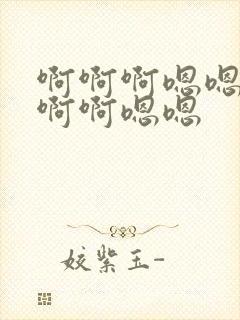 啊啊啊嗯嗯
啊啊嗯嗯
姣紫玉-